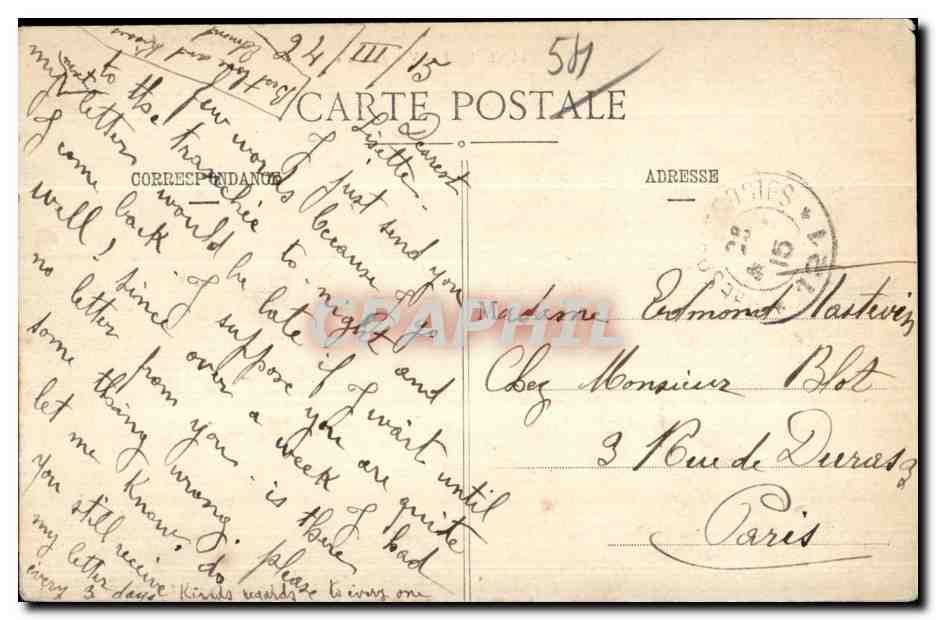 24/III/15
581
CARTE POSTALE
CORRESPONDANCE
ADRESSE
Dearest
Lisette.
I just send you
few words because I go
to the tranchée to night and
my next letters would be late if I wait until
I come back I suppose you are quite
well! Since over a week I had
no letter from you is there
some thing wrong. please
let me know. do
you still receive
my letter
every 3 days Kinds regards to every one
Best love and kisses
Edmond
Madame Edmond Nastevin
Chez Monsieur Blot
3 Rue de Duras 3
Paris
28
15
121
GRAPHIL